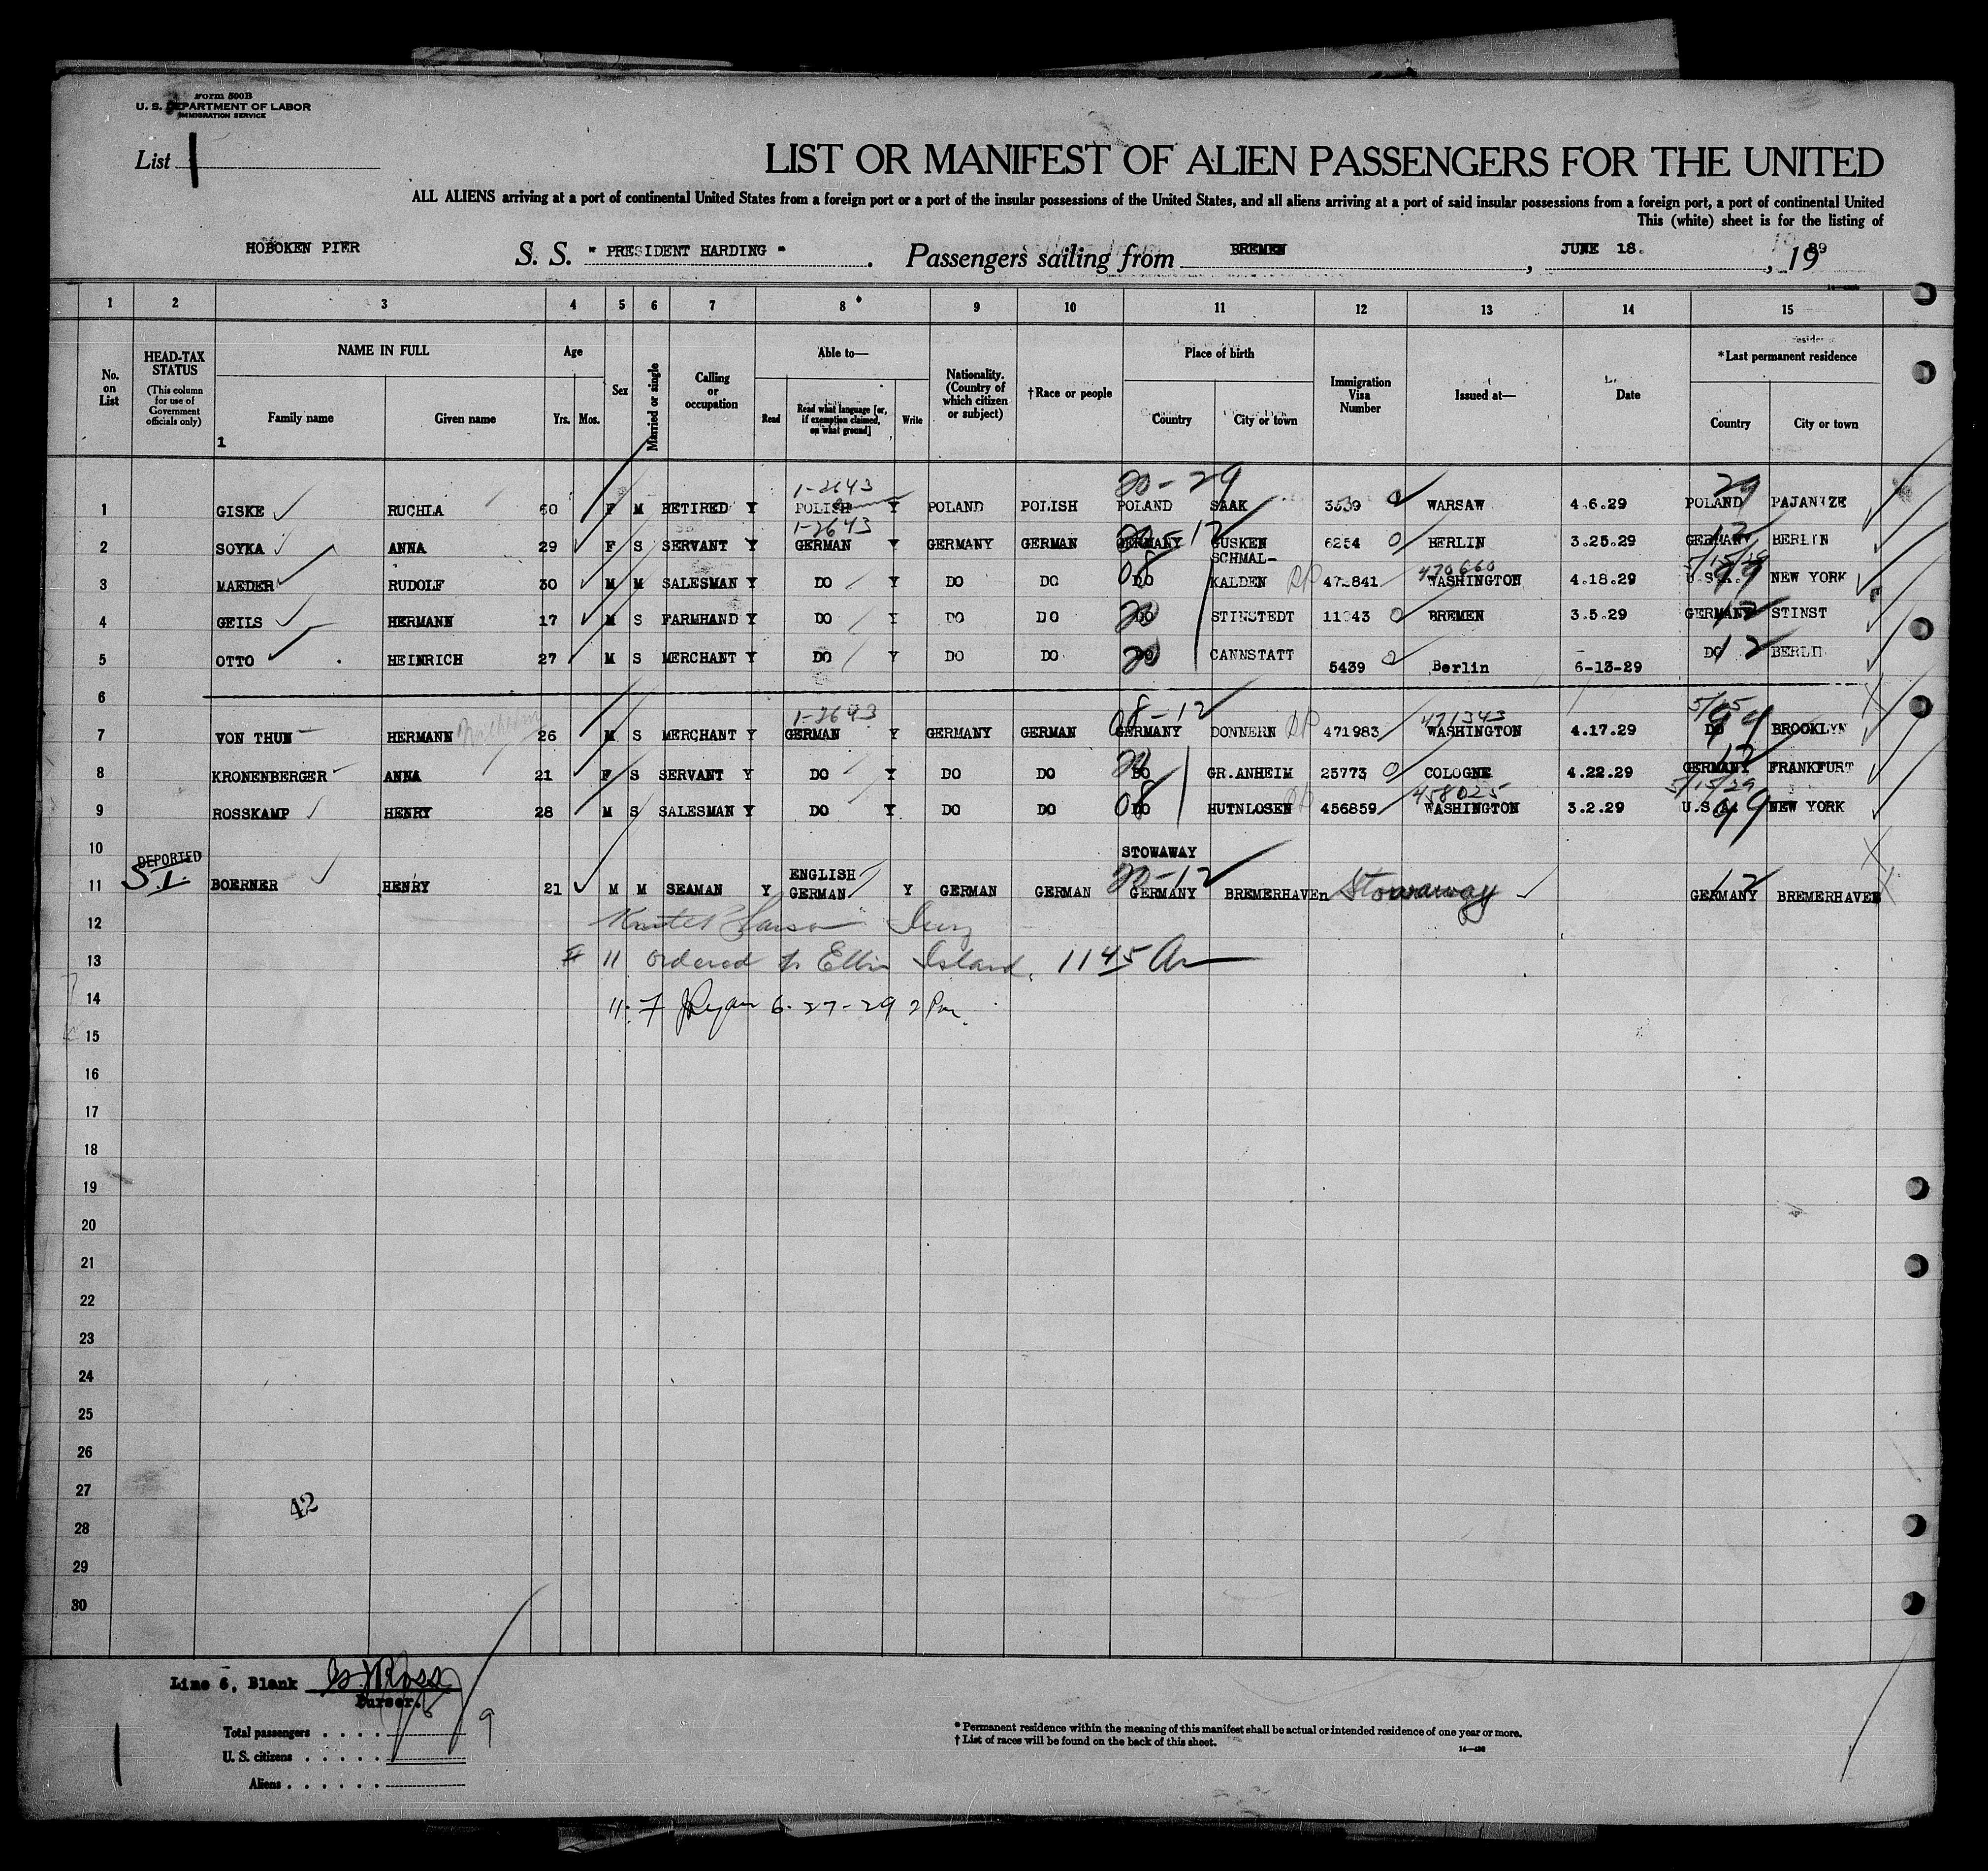 Form 500B
U. S. DEPARTMENT OF LABOR
IMMIGRATION SERVICE
List 1
LIST OR MANIFEST OF ALIEN PASSENGERS FOR THE UNITED
ALL ALIENS arriving at a port of continental United States from a foreign port or a port of the insular possessions of the United States, and all aliens arriving at a port of said insular possessions from a foreign port, a port of continental United
This (white) sheet is for the listing of
HOBOKEN PIER S. S. "PRESIDENT HARDING" . Passengers sailing from BREMEN , JUNE 18. , 19
1 2 3 4 5 6 7 8 9 10 11 12 13 14 15
No. on List
HEAD-TAX STATUS (This column for use of Government officials only)
NAME IN FULL Family name Given name
Age Yrs. Mos.
Sex
Married or single
Calling or occupation
Able to— Read Read what language [or, if exemption claimed, on what ground] Write
Nationality. (Country of which citizen or subject)
†Race or people
Place of birth Country City or town
Immigration Visa Number
Issued at—
Date
*Last permanent residence Country City or town
1
1-2643 20-29 29
1 GISKE RUCHLA 60 F M RETIRED Y POLISH Y POLAND POLISH POLAND SAAK 3539 0 WARSAW 4.6.29 POLAND PAJANTZE
1-2643 20-12 12
2 SOYKA ANNA 29 F S SERVANT Y GERMAN Y GERMANY GERMAN GERMANY GUSKEN 6254 0 BERLIN 3.25.29 GERMANY BERLIN
SCHMAL-
08 470660 99
3 MAEDER RUDOLF 30 M M SALESMAN Y DO Y DO DO DO KALDEN WASHINGTON 4.18.29 U.S.A. NEW YORK
20 12
4 GEILS HERMANN 17 M S FARMHAND Y DO Y DO DO DO STINSTEDT 0 BREMEN 3.5.29 GERMANY STINST
20 12
5 OTTO HEINRICH 27 M S MERCHANT Y DO Y DO DO DO CANNSTATT 5439 0 Berlin 6-13-29 DO BERLIN
6
1-2643 08-12 471343 5/15 99
7 VON THUN HERMANN 26 M S MERCHANT Y GERMAN Y GERMANY GERMAN GERMANY DONNERN 471983 WASHINGTON 4.17.29 DO BROOKLYN
20 12
8 KRONENBERGER ANNA 21 F S SERVANT Y DO Y DO DO DO GR.ANHEIM 25773 0 COLOGNE 4.22.29 GERMANY FRANKFURT
08 458025 5/15/29 99
9 ROSSKAMP HENRY 28 M S SALESMAN Y DO Y DO DO DO HUTNLOSEN 456859 WASHINGTON 3.2.29 U.S.A. NEW YORK
10 STOWAWAY
DEPORTED ENGLISH 20-12 12
11 S.I. BOERNER HENRY 21 M M SEAMAN Y GERMAN Y GERMAN GERMAN GERMANY BREMERHAVEn Stowaway GERMANY BREMERHAVEN
12
13 # 11 ordered to Ellis Island. 11 45 Am
14 11. F JRyan 6-27-29 2 Pm.
15
16
17
18
19
20
21
22
23
24
25
26
27
42
28
29
30
Line 6, Blank
Purser.
9
Total passengers . . . .
U. S. citizens . . . . .
Aliens . . . . . .
* Permanent residence within the meaning of this manifest shall be actual or intended residence of one year or more.
† List of races will be found on the back of this sheet.